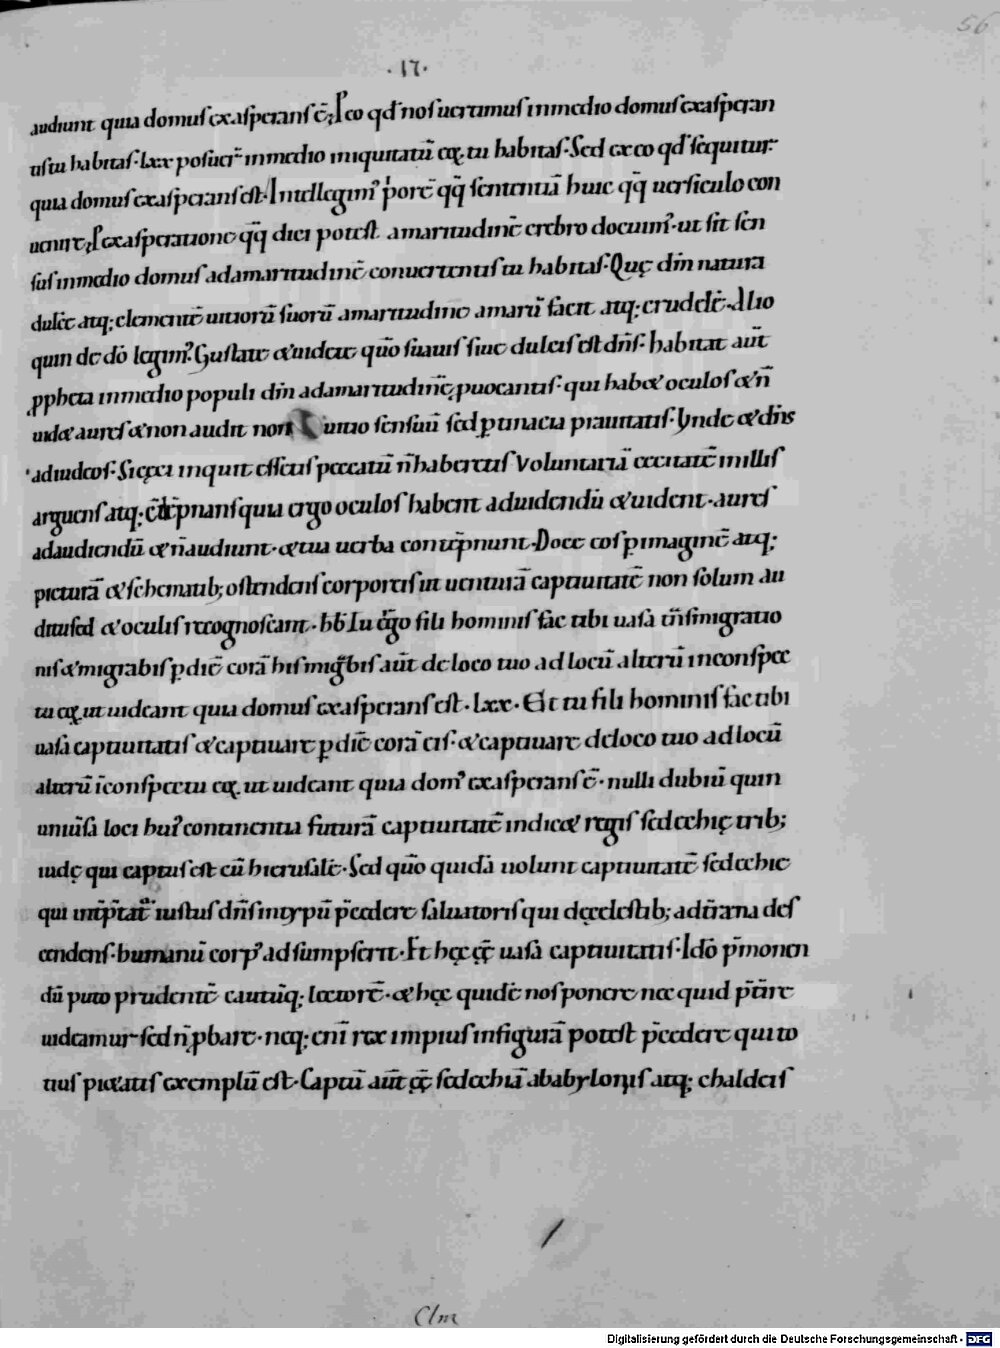 56
·17·
audiunt quia domuſ exaſperanſ ē; Pˢ eo qđ noſ uertimuſ inmedio domuſ exaſperan
tiſ tu habitaſ· lxx poſuerˉ inmedio iniquitatū eoꝝ tu habitaſ· Sed ex eo qđ ſequitur·
quia domuſ exaſperanſ eſt· Intellegimˀ porē qq̄ ſententiā huic qq̄ uerſiculo con
uenire; Pˢ exaſperatione qq̄ dici poteſt amaritudinē crebro docuimˀ· ut ſit ſen
ſuſ inmedio domuſ adamaritudinē conuertentiſ tu habitaſ· Quę dīn natura
dulcē atq; clementē uitiorū ſuorū amaritudine amarū facit atq; crudelē· Alio
quin de dō legimˀ· Guſtate & uidete quō ſuauiſ ſiue dulciſ eſt dn̄ſ· habitat aūt
ꝓpheta inmedio populi dīn adamaritudinē ꝓuocantiſ· qui hab& oculoſ & n̄
uid& aureſ & non audit non uitio ſenſuū ſed ꝑtinacia prauitatiſ· Vnde & dn̄s
adiudeoſ· Si cęci inquit eſſetiſ peccatū n̄ haberetiſ Voluntariā cecitatē illiſ
arguenſ atq; cōp̄hnanſ quia ergo oculoſ habent aduidendū & uident· aureſ
adaudiendū & n̄ audiunt· & tua uerba contēpnunt· Doce eoſ ꝑ imaginē atq;
picturā & ſchematib; oſtendenſ corporeiſ ut uenturā captiuitatē non ſolum au
ditu ſed & oculiſ recognoſcant· hƀ Tu ego fili hominiſ fac tibi uaſa tn̄ſmigratio
niſ & migrabiſ ꝑ diē corā hiſ migˉbiſ aūt de loco tuo ad locū alterū inconſpec
tu eoꝝ ut uideant quia domuſ exaſperanſ eſt· lxx· Et tu fili hominiſ fac tibi
uaſa captiuitatiſ & captiuare ꝑ diē corā eiſ· & captiuare deloco tuo ad locū
alterū īconſpectu eoꝝ ut uideant quia domˀ exaſperanſ ē· nulli dubiū quin
uniūſa loci huiˀ continentia futurā captiuitatē indic& regiſ ſedechię trib;
iudę qui captuſ eſt cū hieruſalē· Sed quō quidā uolunt captiuitatē ſedechie
qui inťp̄tatˉ iuſtuſ dn̄ſ intypū p̄cedere ſaluatoriſ qui dęceleſtib; adtˉrena deſ
cendenſ· humanū corpˀ adſumpſerit· Et hęc ęē uaſa captiuitatiſ· Idō p̄monen
dū puto prudentē cautūq; lectorē· & hęc quidē noſ ponere nec quid p̄tˉire
uideamur ſed n̄ ꝓbare· neq; eni rex impiuſ infigurā poteſt p̄cedere qui to
tiuſ pi&atiſ exemplū eſt· Captū aūt ęē ſedechiā ababyloniſ atq; chaldeiſ
Clm
Digitalisierung gefördert durch die Deutsche Forschungsgemeinschaft - DFG